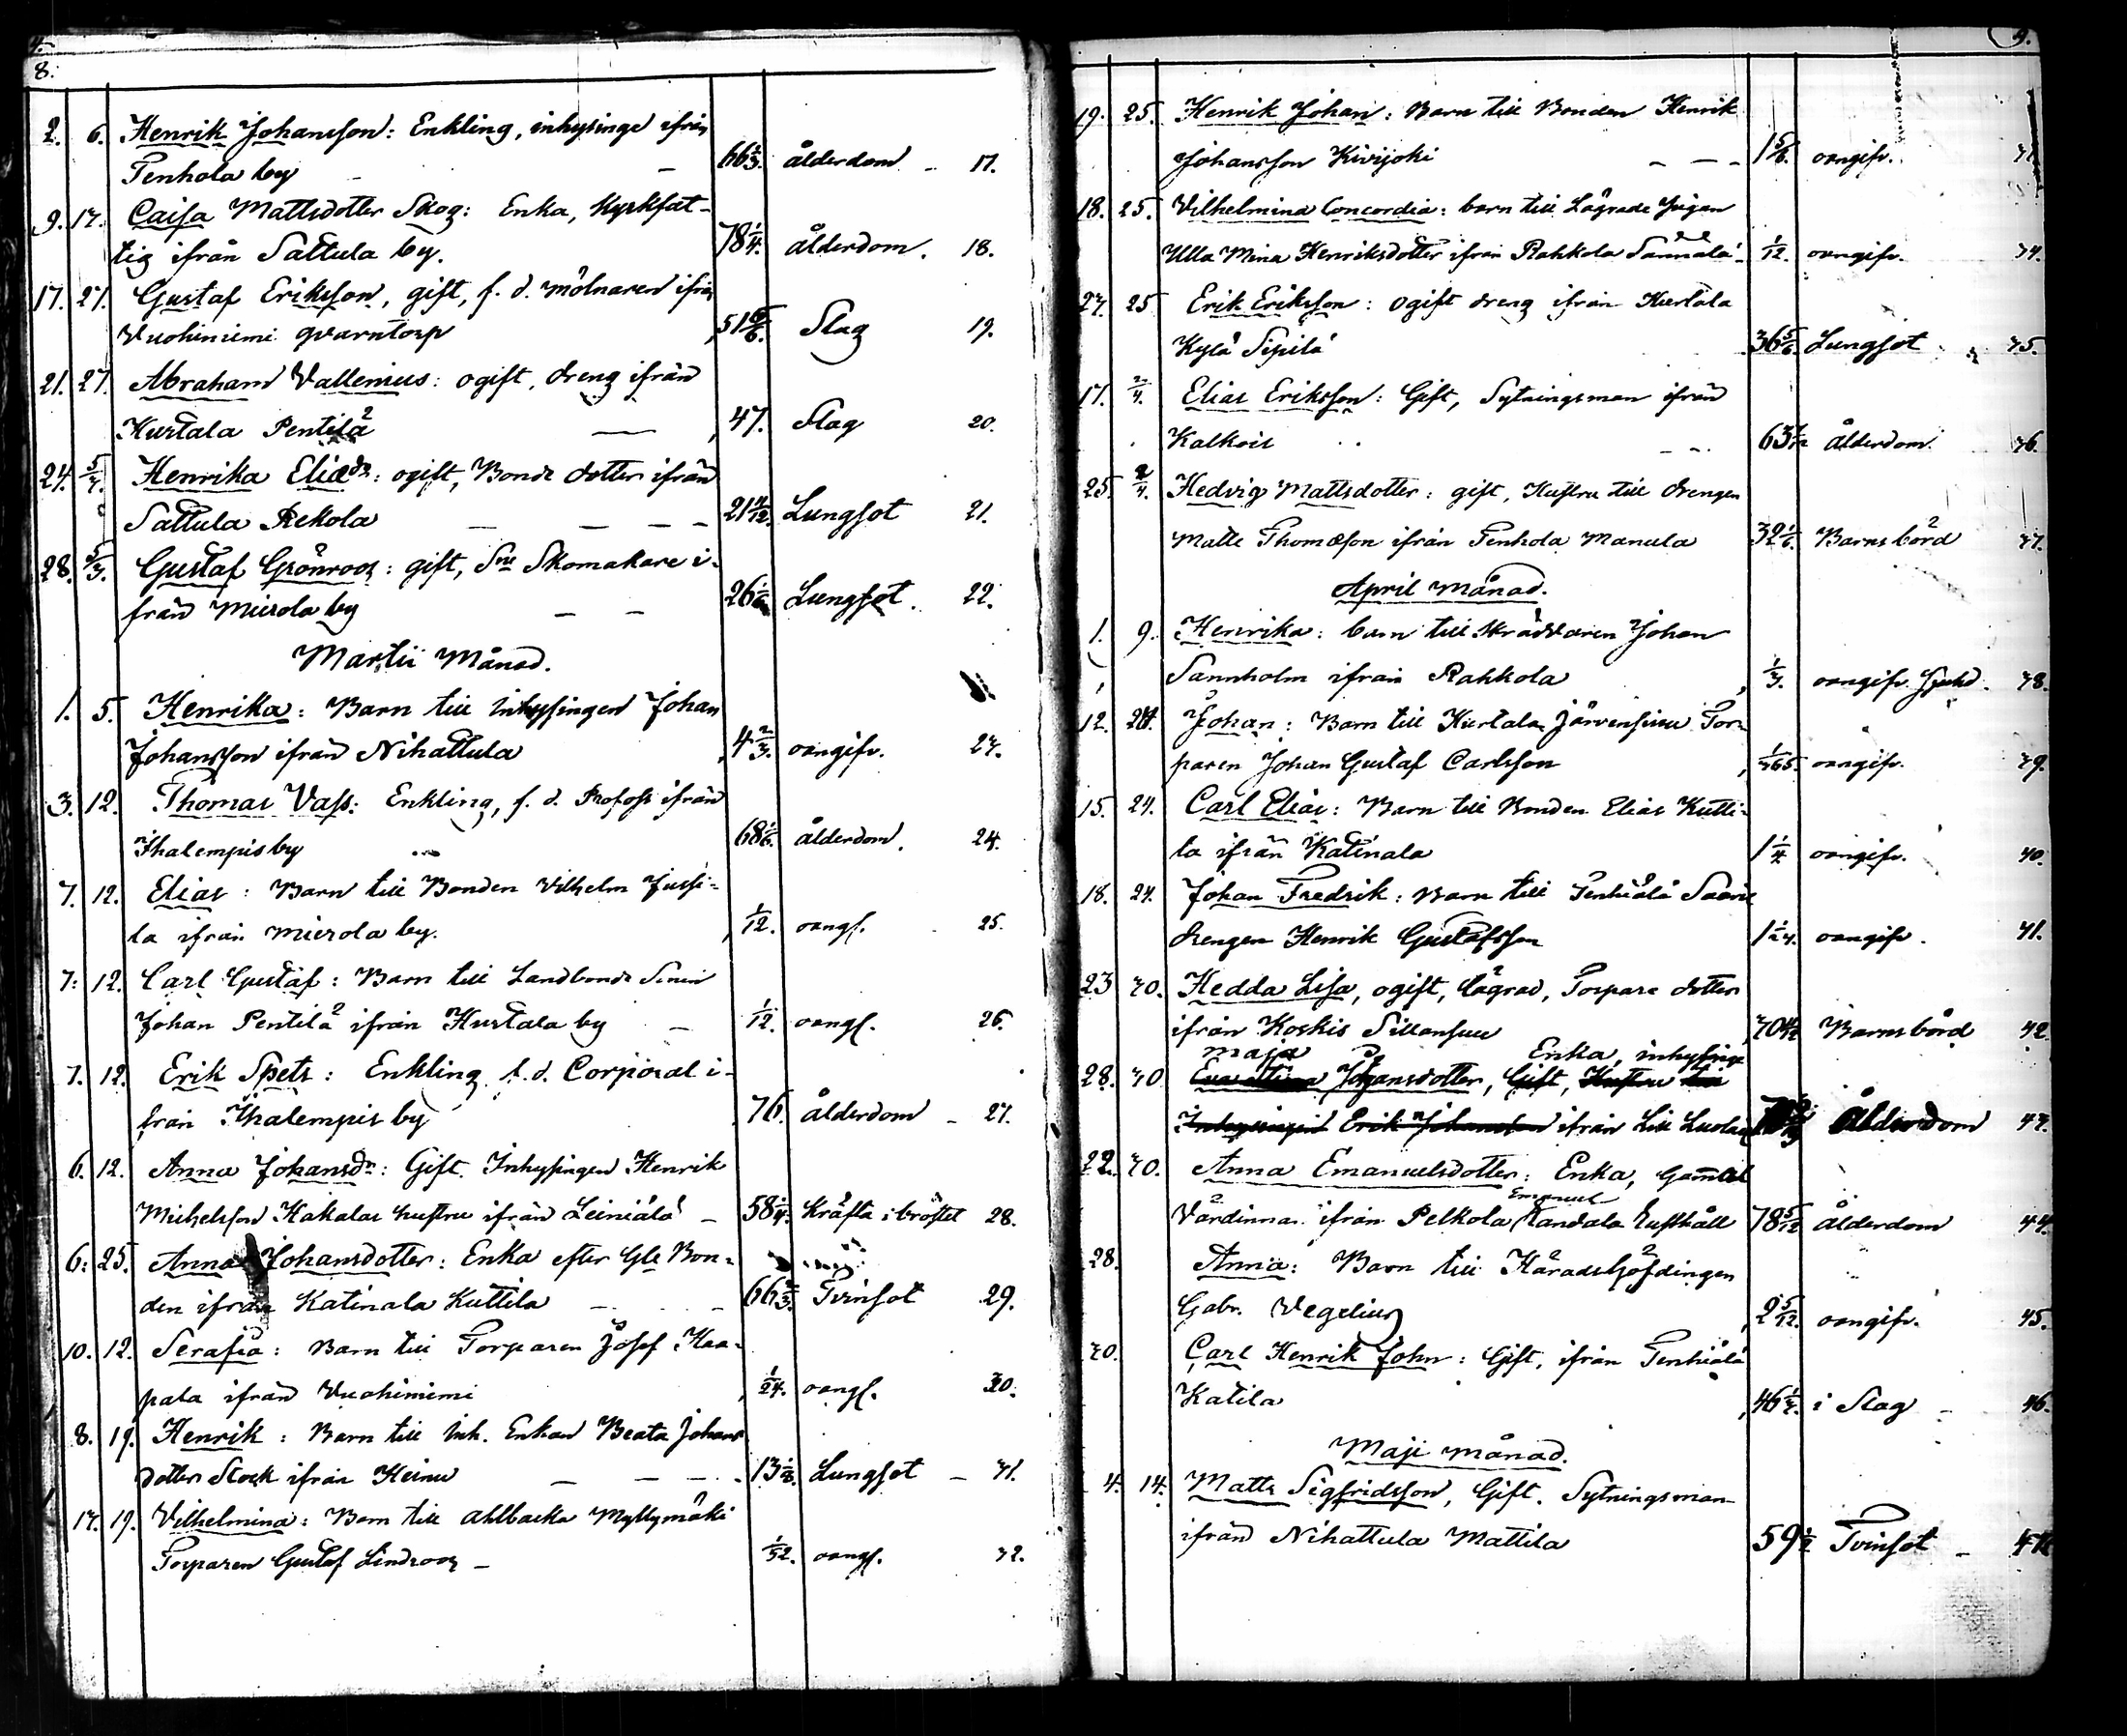 8.
2. 6. Henrik Johansson: Enkling, inhysinge ifrån
Tenhola by 66 2/3. ålderdom 17.
9. 17. Caisa Mattsdotter Skog: Enka, Kyrkfat-
tig ifrån Sattula by. 78 1/4. ålderdom. 18.
17. 27. Gustaf Eriksson, gift, f. d. mölnaren ifrån
Vuohiniemi qvarntorp 51 5/6. Slag 19.
21. 27. Abraham Vallenius: ogift, dreng ifrån
Kurtala Pentilä 47. Slag 20.
24. 5/3. Henrika Eliædr: ogift, Bonde dotter ifrån
Sattula Rekola 21 4/12. Lungsot 21.
28. 5/3. Gustaf Grönroos: gift, Skomakare i-
från Mierola by 26 1/6. Lungsot. 22.
Martii Månad.
1. 5. Henrika: Barn till Inhysingen Johan
Johansson ifrån Nihattula 4 2/3. oangifv. 23.
3. 12. Thomas Vass: Enkling, f. d. Profoss ifrån
Ihalempis by 68 1/6. ålderdom. 24.
7. 12. Elias: Barn till Bonden Vilhelm Jussi-
la ifrån Mierola by. 1/12. oangf. 25.
7. 12. Carl Gustaf: Barn till Landbonde Sonen
Johan Pentilä ifrån Kurtala by 1/12. oangf. 26.
7. 12. Erik Spets: Enkling, f. d. Corporal i-
från Ihalempis by 76. ålderdom 27.
6. 12. Anna Johansdr: Gift. Inhysingen Henrik
Michelsson Kakalas hustru ifrån Leiniälä 58 1/4. Kräfta i bröstet 28.
6. 25. Anna Johansdotter: Enka efter Gle Bon-
den ifrån Katinala Kuttila 66 2/3. Tvinsot 29.
10. 12. Serafia: Barn till Torparen Josef Haa-
pala ifrån Vuohiniemi 1/24. oangf. 30.
8. 19. Henrik: Barn till Inh. Enkan Beata Johans
dotter Stock ifrån Keinu 13 1/2. Lungsot 31.
17. 19. Vilhelmina: Barn till Ahlbacka Myllymäki
Torparen Gustaf Lindroos 1/52. oangf. 32.
9.
19. 25. Henrik Johan: Barn till Bonden Henrik
Johansson Kivijoki 1 5/6. oangifv. 33.
18. 25. Vilhelmina Concordia: barn till Lägrade Pigan
Ulla Mina Henriksdotter ifrån Rahkola Sannala 1/12. oangifv. 34.
23. 25 Erik Eriksson: ogift dreng ifrån Kurtala
Kylä Sipilä 36 5/6. Lungsot 35.
17. 2/4. Elias Eriksson: Gift, Sytningsman ifrån
Kalkois 63 ålderdom. 36.
25. 2/4. Hedvig Mattsdotter: gift, Hustru till drengen
Matte Thomæson ifrån Tenhola Manula 32 1/6. Barnsbörd 37.
April Månad.
1. 9. Henrika: barn till Skräddaren Johan
Sannholm ifrån Rahkola 1/3. oangifv. Sjukd. 38.
12. 24. Johan: Barn till Kurtala Järvensivu Tor-
paren Johan Gustaf Carlsson 1/365. oangifv. 39.
15. 24. Carl Elias: Barn till Bonden Elias Kutti-
la ifrån Katinala 1 1/4 oangifv. 40.
18. 24. Johan Fredrik: Barn till Tenhiälä
drengen Henrik Gustafsson 1 1/24. oangifv. 41.
23 30. Hedda Lisa, ogift, lägrad, Torpare dotter
ifrån Koskis Sillansuu Barnsbörd 42.
Maja Enka, inhysinge
28. 30. Johansdotter, Gift, Hustru till
Inhysingen Erik Johansson ifrån Lill Luolaja Ålderdom 43.
22. 30. Anna Emanuelsdotter: Enka, Gam̅al
Emanuel
Värdinnan ifrån Pelkola Kandala Rusthåll 78 5/12 ålderdom 44.
28. Anna: Barn till Häradshöfdingen
Gabr. Vegelius 2 5/12. oangifv. 45.
30. Carl Henrik John: Gift, ifrån Tenhiälä
Katila 46 1/2. i Slag 46.
Maji Månad.
4. 14. Matts Sigfridsson, Gift. Sytningsman
ifrån Nihattula Mattila 59 1/2 Tvinsot 47.